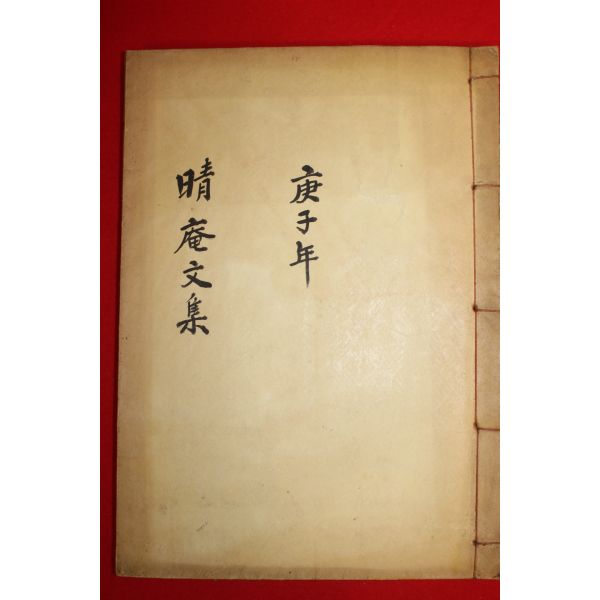 庚子年
晴庵文集